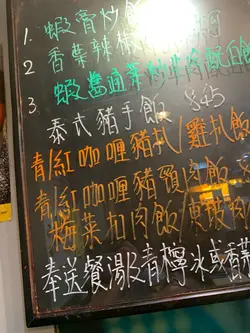 1. 蝦膏炒飯
2 香葉辣椒
3. 蝦醬通菜炒牛肉飯
泰式豬手飯 $45
青/紅咖喱豬扒/雞扒飯
青/紅咖喱豬頸肉飯
梅菜扣肉飯/東坡肉
奉送餐湯及青檸冰或香茅